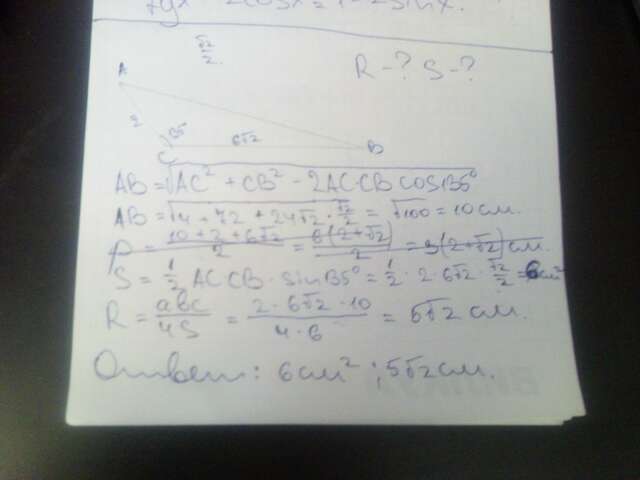 tgx 2cosx = 1 - 2sinx.
√2/2.
R - ? S - ?
A
2
135
6√2
C
B
AB = √AC² + CB² - 2AC·CB cos135°
AB = √4 + 72 + 24√2 · √2/2 = √100 = 10 см.
S = 1/2 AC·CB · sin135° = 1/2 · 2 · 6√2 · √2/2 = 6 см²
R = abc/4S = 2 · 6√2 · 10/4 · 6 = 5√2 см.
Ответ: 6 см² ; 5√2 см.